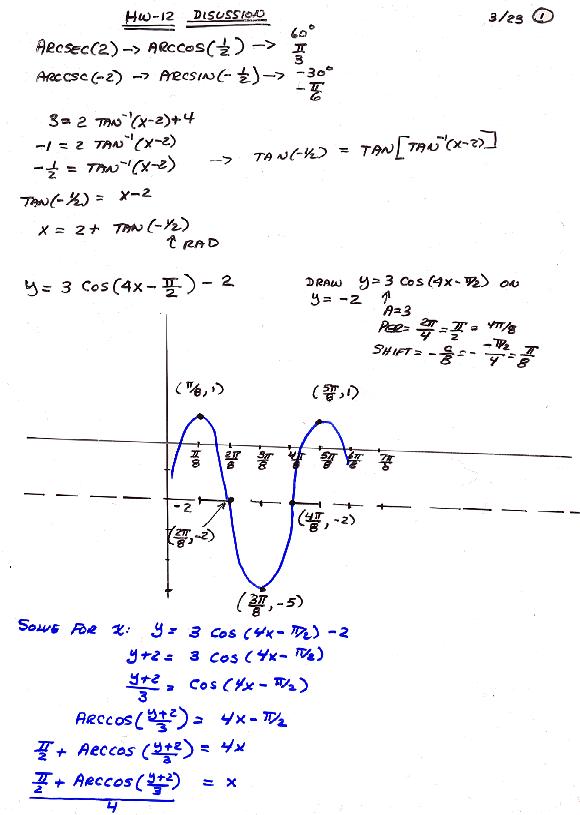 HW-12 DISUSSION 3/23 1
ARCSEC(2) → ARCCOS(1/2) → 60° π/3
ARCCSC(-2) → ARCSIN(-1/2) → -30° -π/6
3 = 2 TAN⁻¹(x-2)+4
-1 = 2 TAN⁻¹(x-2)
-1/2 = TAN⁻¹(x-2) → TAN(-1/2) = TAN[TAN⁻¹(x-2)]
TAN(-1/2) = x-2
x = 2 + TAN(-1/2)
↑ RAD
y = 3 COS(4x - π/2) - 2
DRAW y = 3 COS(4x - π/2) ON
y = -2 ↑
A=3
PER = 2π/4 = π/2 = 4π/8
SHIFT = -C/B = - -π/2/4 = π/8
(π/8, 1) (5π/8, 1)
π/8 2π/8 3π/8 4π/8 5π/8 6π/8 7π/8
-2
(2π/8, -2) (4π/8, -2)
(3π/8, -5)
SOLVE FOR x: y = 3 COS(4x - π/2) - 2
y+2 = 3 COS(4x - π/2)
y+2/3 = COS(4x - π/2)
ARCCOS(y+2/3) = 4x - π/2
π/2 + ARCCOS(y+2/3) = 4x
π/2 + ARCCOS(y+2/3) = x
4